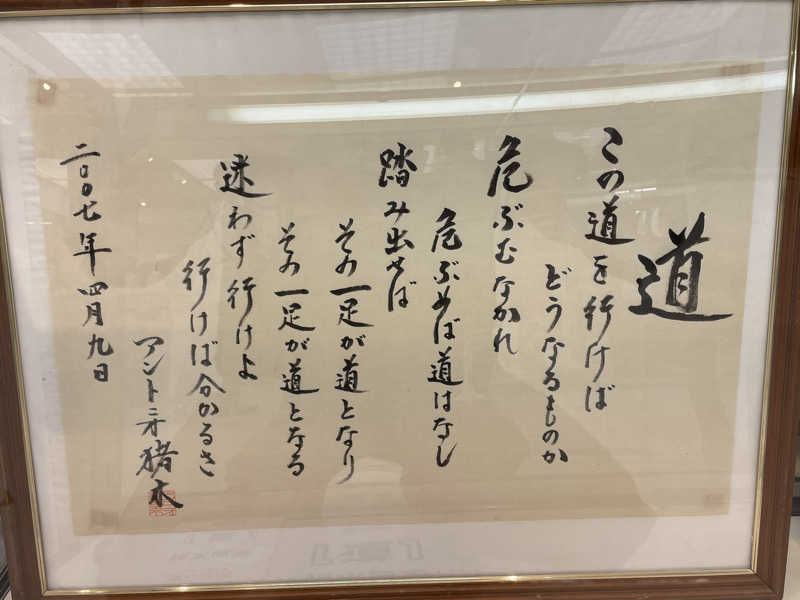 道
この道を行けば
どうなるものか
危ぶむなかれ
危ぶめば道はなし
踏み出せば
その一足が道となり
その一足が道となる
迷わず行けよ
行けば分かるさ
二〇〇七年四月九日
アントニオ猪木